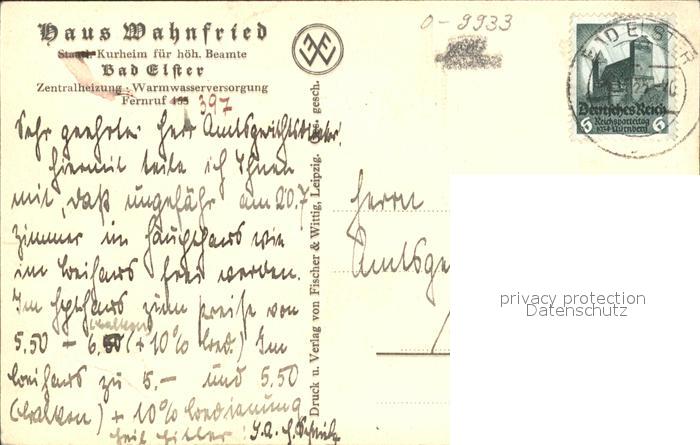 Haus Wahnfried
Staatl. Kurheim für höh. Beamte
Bad Elster
Zentralheizung · Warmwasserversorgung
Fernruf 155 397
Sehr geehrter Herr
hiermit teile ich Ihnen
mit, daß ungefähr am 20.7
Zimmer im Haupthaus wie
im frei werden.
Im Hpthaus zum Preise von
(Balkon)
5.50 – 6.50 (+ 10% Bed.) Im
zu 5.– und 5.50
(Balkon) + 10% Bedienung
Heil Hitler! I.A.
Druck u. Verlag von Fischer & Wittig, Leipzig. Ges. gesch.
0-9933
BAD ELSTER
Deutsches Reich
Reichsparteitag
1934 Nürnberg
6 6
Herrn
Amtsge
privacy protection
Datenschutz